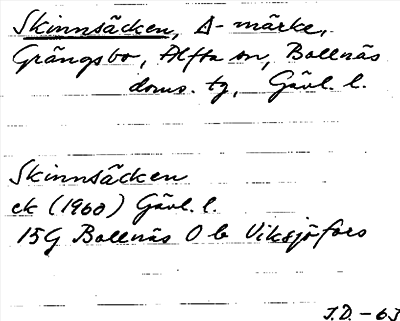 Skinnsäcken, Δ-märke,
Grängsbo, Alfta sn, Bollnäs
doms. tg, Gävl. l.
Skinnsäcken
ek (1960) Gävl. l.
15G Bollnäs 0 b Viksjöfors
J.D. - 63